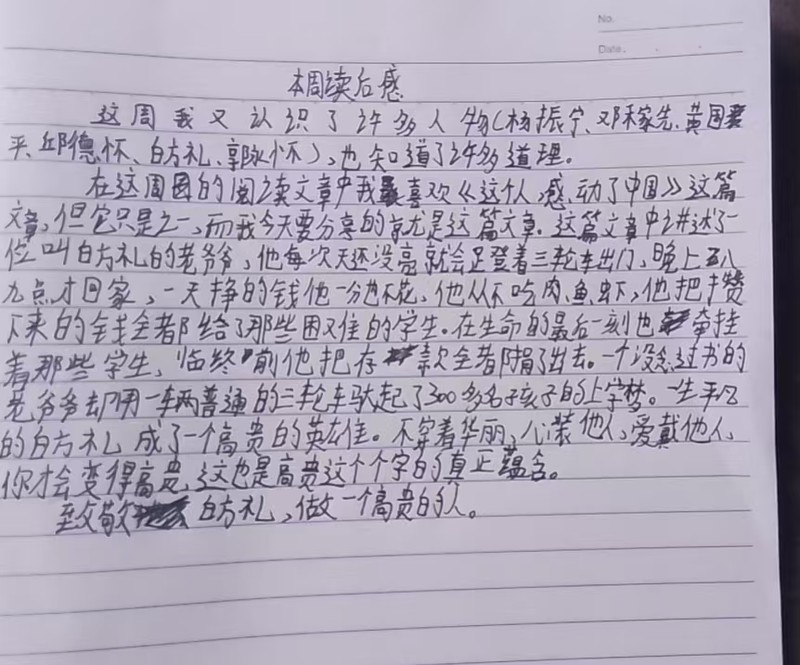 No.
Date.
本周读后感
这周我又认识了许多人物(杨振宁、邓稼先、黄国平、邱德怀、白方礼、郭永怀),也知道了许多道理。
在这周的阅读文章中我最喜欢《这个人,感动了中国》这篇
文章,但它只是之一,而我今天要分享的就是这篇文章。这篇文章中讲述了一
位叫白方礼的老爷爷,他每次天还没亮就会蹬着三轮车出门,晚上
九点才回家,一天挣的钱他一分也不花,他从不吃肉、鱼、虾,他把攒
下来的钱全都给了那些困难的学生。在生命的最后一刻也牵挂
着那些学生,临终前他把存款全都捐了出去。一个没念过书的
老爷爷却用一车两普通的三轮车驮起了300多名孩子的上学梦。一生平凡
的白方礼成了一个高贵的英雄。不穿着华丽,心装他人,爱戴他人,
你才会变得高贵,这也是高贵这个个字的真正蕴含。
致敬白方礼,做一个高贵的人。